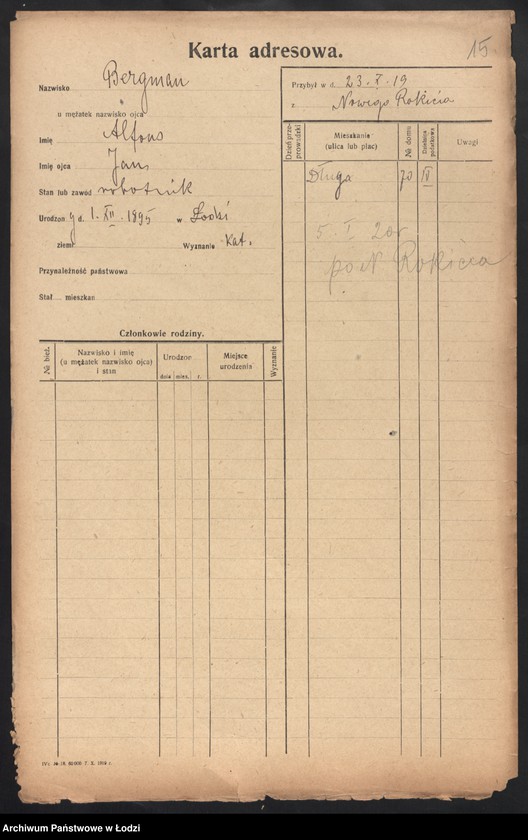 Karta adresowa.
15.
Nazwisko Bergman
u mężatek nazwisko ojca
Imię Alfons
Imię ojca Jan
Stan lub zawód robotnik
Urodzony d. 1. XII. 1895 w Łodzi
ziemi Wyznanie kat.
Przynależność państwowa
Stał. mieszkan.
Członkowie rodziny.
№ bież. Nazwisko i imię (u mężatek nazwisko ojca) i stan Urodzone Miejsce urodzenia Wyznanie
data mies. r.
Przybył w d. 23. X. 19
z Nowego Rokicia
Dzień przeprowadzki Mieszkanie (ulica lub plac) № domu Dzielnica podatkowa Uwagi
Długa 70 II
5. I 20r
Rokicia
7. X. 1918 r.
Archiwum Państwowe w Łodzi